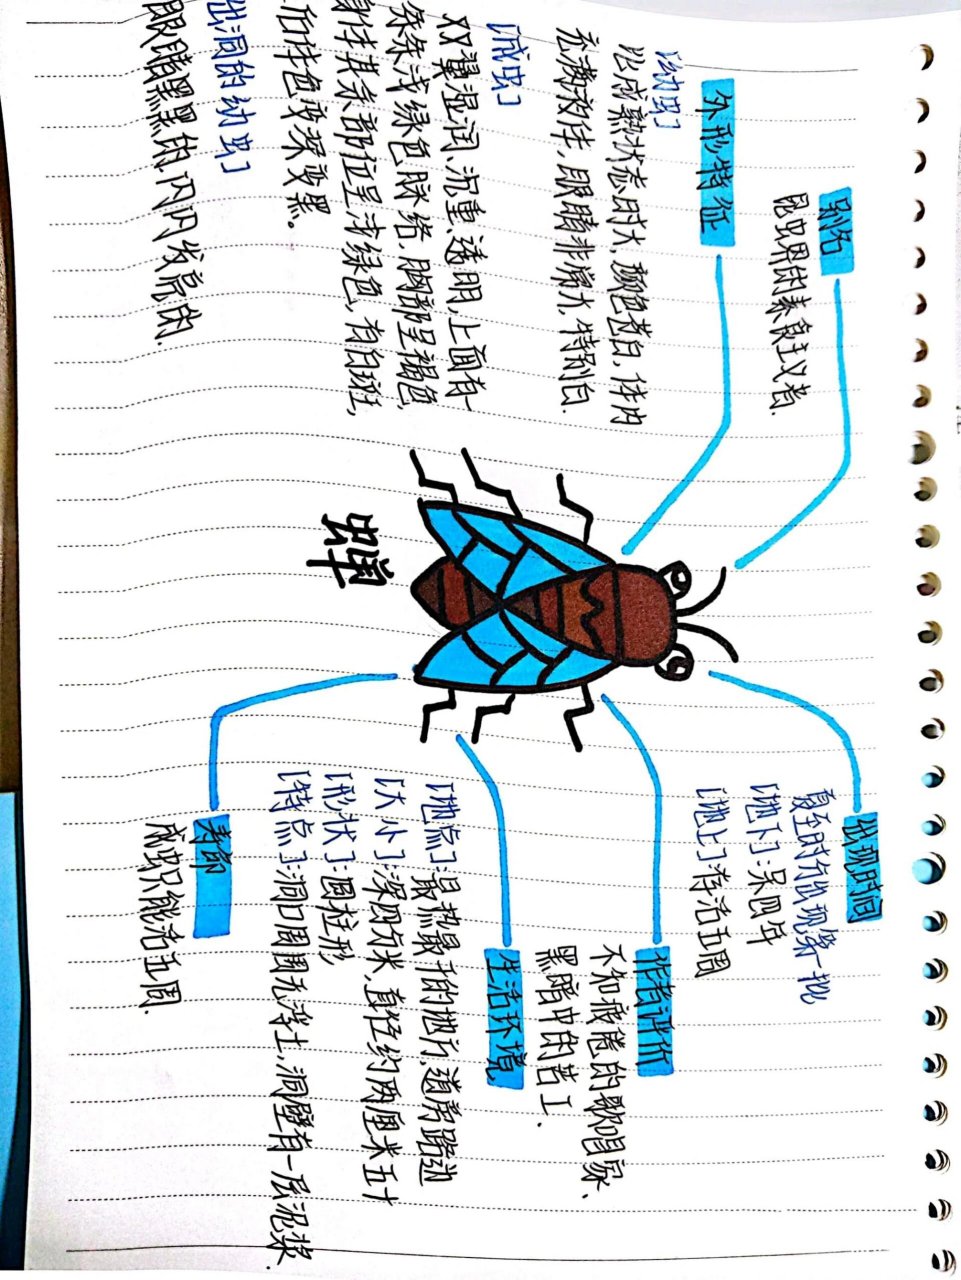 别名
昆虫界的素食主义者.
外形特征
[幼虫]
以成熟状态时大,颜色苍白,体内
充满液体,眼睛非常大,特别白.
[成虫]
双翼湿润、沉重、透明,上面有一
条条浅绿色脉络,胸部呈褐色,
身体其余部位呈浅绿色,有白斑,
后体色变深变黑。
出洞的幼虫]
眼睛黑黑的,闪闪发亮的.
蝉
出现时间
夏至时分出现第一批
[地下]:呆四年
[地上]:存活五周
作者评价
不知疲倦的歌唱家、
黑暗中的苦工.
生活环境
[地点]:最热最干的地方,道旁路边
[大小]:深四分米,直径约两厘米五十
[形状]:圆柱形
[特点]:洞口周围无浮土,洞壁有一层泥浆.
寿命
成虫只能活五周.